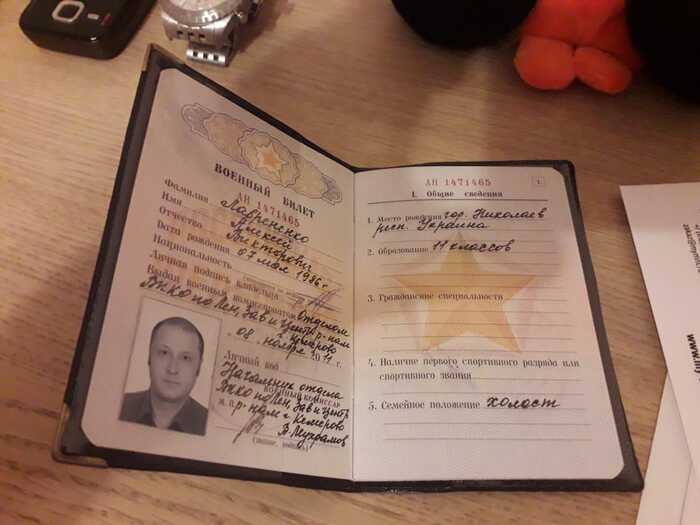 ВОЕННЫЙ БИЛЕТ
АН 1471465
Фамилия Лавриненко
Имя Алексей
Отчество Викторович
Дата рождения 07 мая 1986 г
Национальность
Личная подпись владельца
Выдан военным комиссариатом Отделом
ВККО по Лен, Зав и Центр р-нам
г. Кемерово
08. ноября 2011 г.
Личный код
Начальник отдела
военный комиссар
ВККО по Лен, Зав и Центр
М. П. р-нам г. Кемерово
АН 1471465
1
I. Общие сведения
1. Место рождения гор. Николаев
респ. Украина
2. Образование 11 классов
3. Гражданские специальности
4. Наличие первого спортивного разряда или
спортивного звания
5. Семейное положение холост